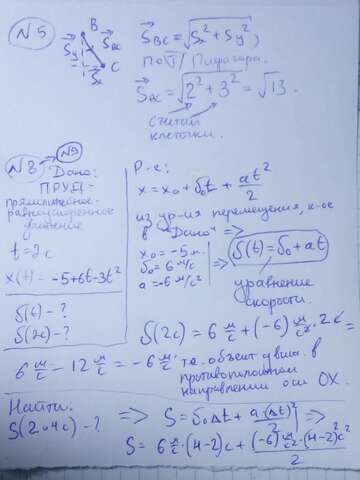 №5
B
C
S⃗y
S⃗x
S⃗BC
S⃗BC = √(Sx² + Sy²),
по Т/ Пифагора.
S⃗BC = √(2² + 3²) = √13.
считай
клеточки.
№8 → №9
Дано:
ПРУД -
прямолинейное -
равноускоренное
движение
t = 2с
x(t) = -5+6t-3t²
V(t) - ?
V(2с) - ?
Р-е:
x = x₀ + V₀t + at²/2
из ур-ия перемещения, к-ое
в "Дано" =>
x₀ = -5 м
V₀ = 6 м/с
a = -6 м/с²
=> V(t) = V₀ + at
уравнение
скорости.
=>
V(2с) = 6 м/с + (-6) м/с² · 2с =
6 м/с - 12 м/с = -6 м/с. т.е. объект движ. в
противоположном
направлении оси OX.
Найти:
S(2 и 4с) - ?
=> S = V₀Δt + a(Δt)²/2 =>
S = 6 м/с · (4-2)с + (-6) м/с² · (4-2)² с²/2